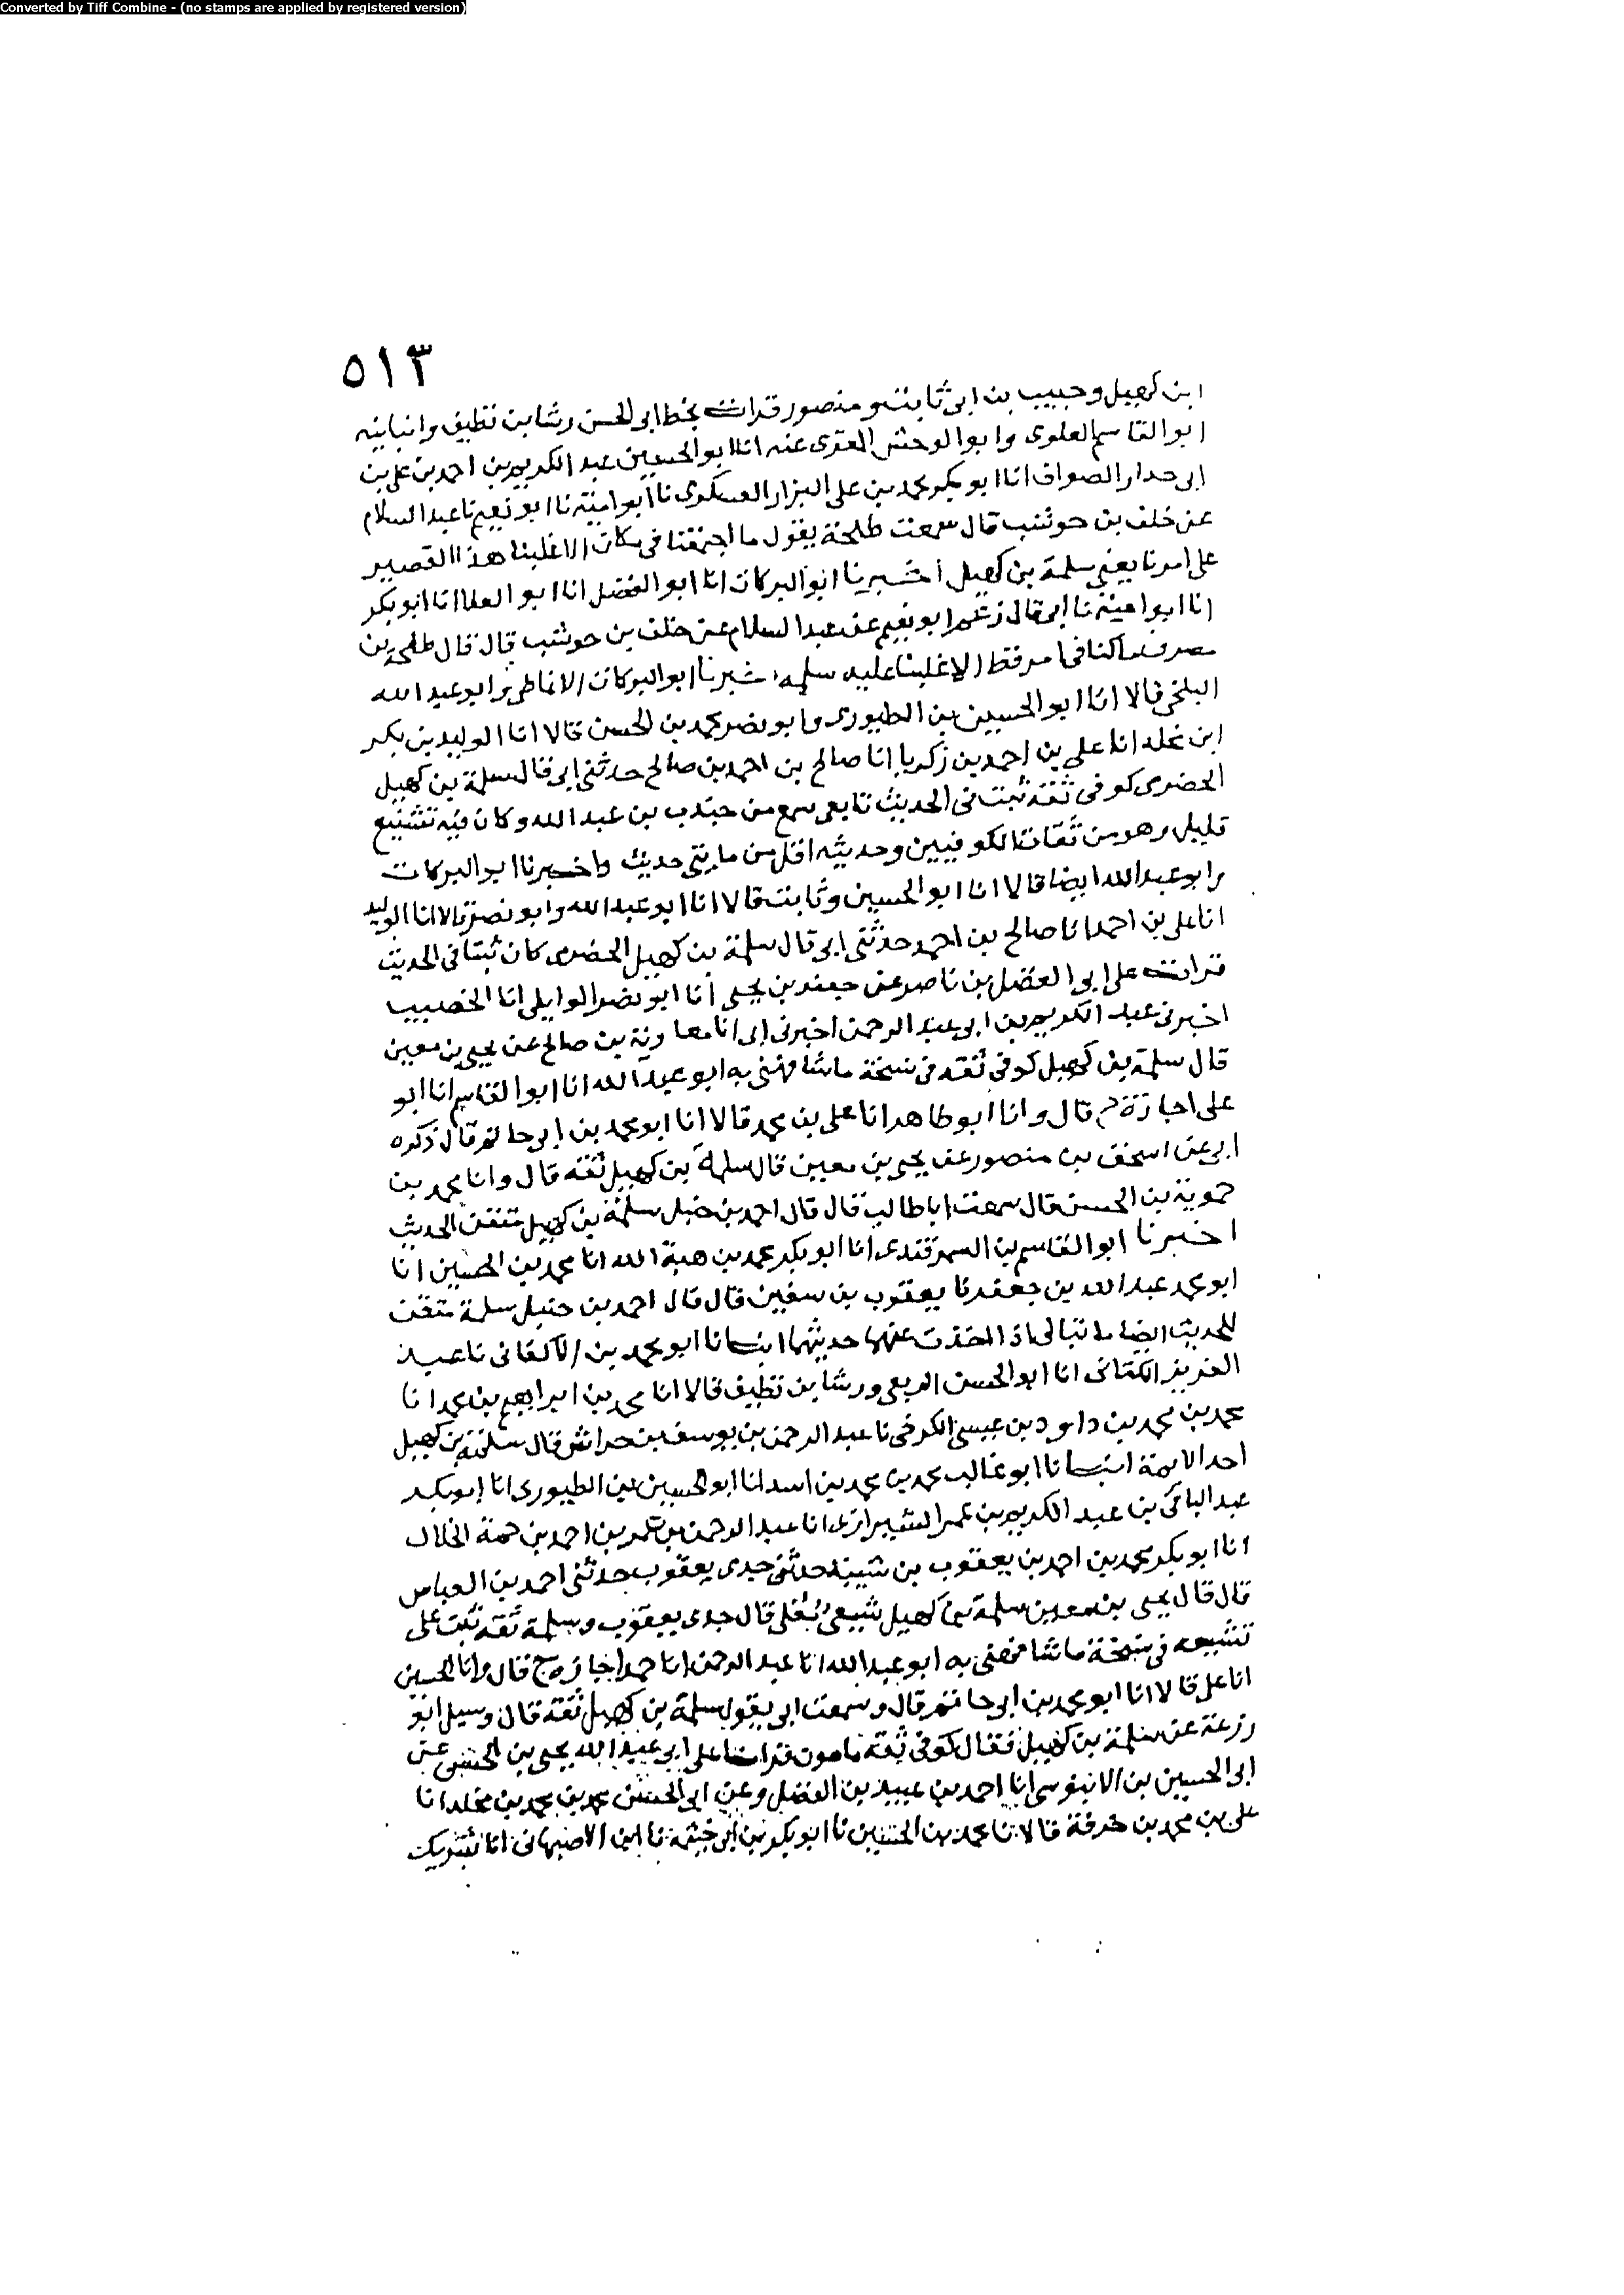 Converted by Tiff Combine - (no stamps are applied by registered version)
٥١٣
ابن كهيل وحبيب بن ابى ثابت ومنصور قرات بخط ابى الحسن رشا بن نظيف وانبانيه
ابو القاسم العلوى وابو الوحش المقرى عنه انا ابو الحسين عبد الكريم بن احمد بن على بن
ابى حدار الصواف انا ابو بكر محمد بن على البزار العسكرى نا ابو امية نا ابو نعيم نا عبد السلام
عن خلف بن حوشب قال سمعت طلحة يقول ما اجتمعنا فى مكان الا غلبنا هذا القصير
على امرنا يعنى سلمة بن كهيل اخبرنا ابو البركات انا ابو الفضل انا ابو العلا انا ابو بكر
انا ابو امية نا ابى قال زعم ابو نعيم عن عبد السلام عن خلف بن حوشب قال قال طلحة بن
مصرف ما كنا فى امر قط الا غلبنا عليه سلمه اخبرنا ابو البركات الانماطى وابو عبد الله
البلخى قالا انا ابو الحسين بن الطيورى وابو نصر محمد بن الحسن قالا انا الوليد بن بكر
ابن مخلد انا على بن احمد بن زكريا انا صالح بن احمد بن صالح حدثنى ابى قال سلمة بن كهيل
الحضرى كوفى ثقة ثبت فى الحديث تابعى سمع من جندب بن عبد الله وكان فيه تشيع
قليل وهو من ثقات الكوفيين وحديثه اقل من مايتى حديث واخبرنا ابو البركات
وابو عبد الله ايضا قالا انا ابو الحسين وثابت قالا انا ابو عبد الله وابو نصر قالا انا الوليد
انا على بن احمد انا صالح بن احمد حدثنى ابى قال سلمة بن كهيل الحضرى كان ثبتا فى الحديث
قرات على ابى الفضل بن ناصر عن جعفر بن يحيى انا ابو نصر الوايلى انا الخصيب
اخبرنى عبد الكريم بن ابى عبد الرحمن اخبرنى ابى انا معاوية بن صالح عن يحيى بن معين
قال سلمة بن كهيل كوفى ثقة فى نسخة ما شافهنى به ابو عبد الله انا ابو القاسم انا ابو
على اجازة ح قال وانا ابو طاهر انا على بن محمد قالا انا ابو محمد بن ابى حاتم قال ذكره
ابى عن اسحق بن منصور عن يحيى بن معين قال سلمة بن كهيل ثقة قال وانا محمد بن
حموية بن الحسن قال سمعت ابا طالب قال قال احمد بن حنبل سلمة بن كهيل متقن الحديث
اخبرنا ابو القاسم بن السمرقندى انا ابو بكر محمد بن هبة الله انا محمد بن الحسين انا
ابو محمد عبد الله بن جعفر نا يعقوب بن سفين قال قال احمد بن حنبل سلمة متقن
للحديث ايضا ما تبالى اذا اخذت عنهما حديثهما انبانا ابو محمد بن الاكفانى نا عبد
العزيز الكتانى انا ابو الحسن الربعى ورشا بن نظيف قالا انا محمد بن ابراهيم بن محمد انا
محمد بن محمد بن داود بن عيسى الكرخى نا عبد الرحمن بن يوسف بن خراش قال سلمة بن كهيل
احد الايمة انبانا ابو غالب محمد بن محمد بن اسد انا ابو الحسين بن الطيورى انا ابو بكر
عبد الباقى بن عبد الكريم بن عمر الشيرازى انا عبد الرحمن بن عمر بن احمد بن حمة الخلال
انا ابو بكر محمد بن احمد بن يعقوب بن شيبة حدثنى جدى يعقوب حدثنى احمد بن العباس
قال قال يحيى بن معين سلمة بن كهيل شيعى قال جدى يعقوب وسلمة ثقة ثبت على
تشيعه فى نسخة ما شافهنى به ابو عبد الله انا عبد الرحمن انا حمد اجازة ح قال وانا الحسين
انا على قالا انا ابو محمد بن ابى حاتم قال وسمعت ابى يقول سلمة بن كهيل ثقة قال وسيل ابو
زرعة عن سلمة بن كهيل فقال كوفى ثقة مامون قرات على ابى عبد الله يحيى بن الحسن عن
ابى الحسين بن الابنوسى انا احمد بن عبيد بن الفضل وعن ابى الحسن محمد بن محمد بن مخلد انا
على بن محمد بن خزفة قالا نا محمد بن الحسين نا ابو بكر بن ابى خيثمة نا ابن الاصبهانى انا شريك